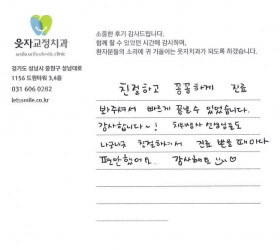 웃자교정치과
소중한 후기 감사드립니다.
함께 할 수 있었던 시간에 감사하며,
환자분들의 소리에 귀 기울이는 웃자치과가 되도록 하겠습니다.
경기도 성남시 중원구 성남대로
1156 드림타워 3,4층
031 606 0282
letssmile.co.kr
친절하고 꼼꼼하게 진료
봐주셔서 빠르게 끝낼수 있었습니다.
감사합니다~! 치위생사 선생님들도
나긋나긋 친절하셔서 진료 받을 때마다
편안했어요. 감사해요